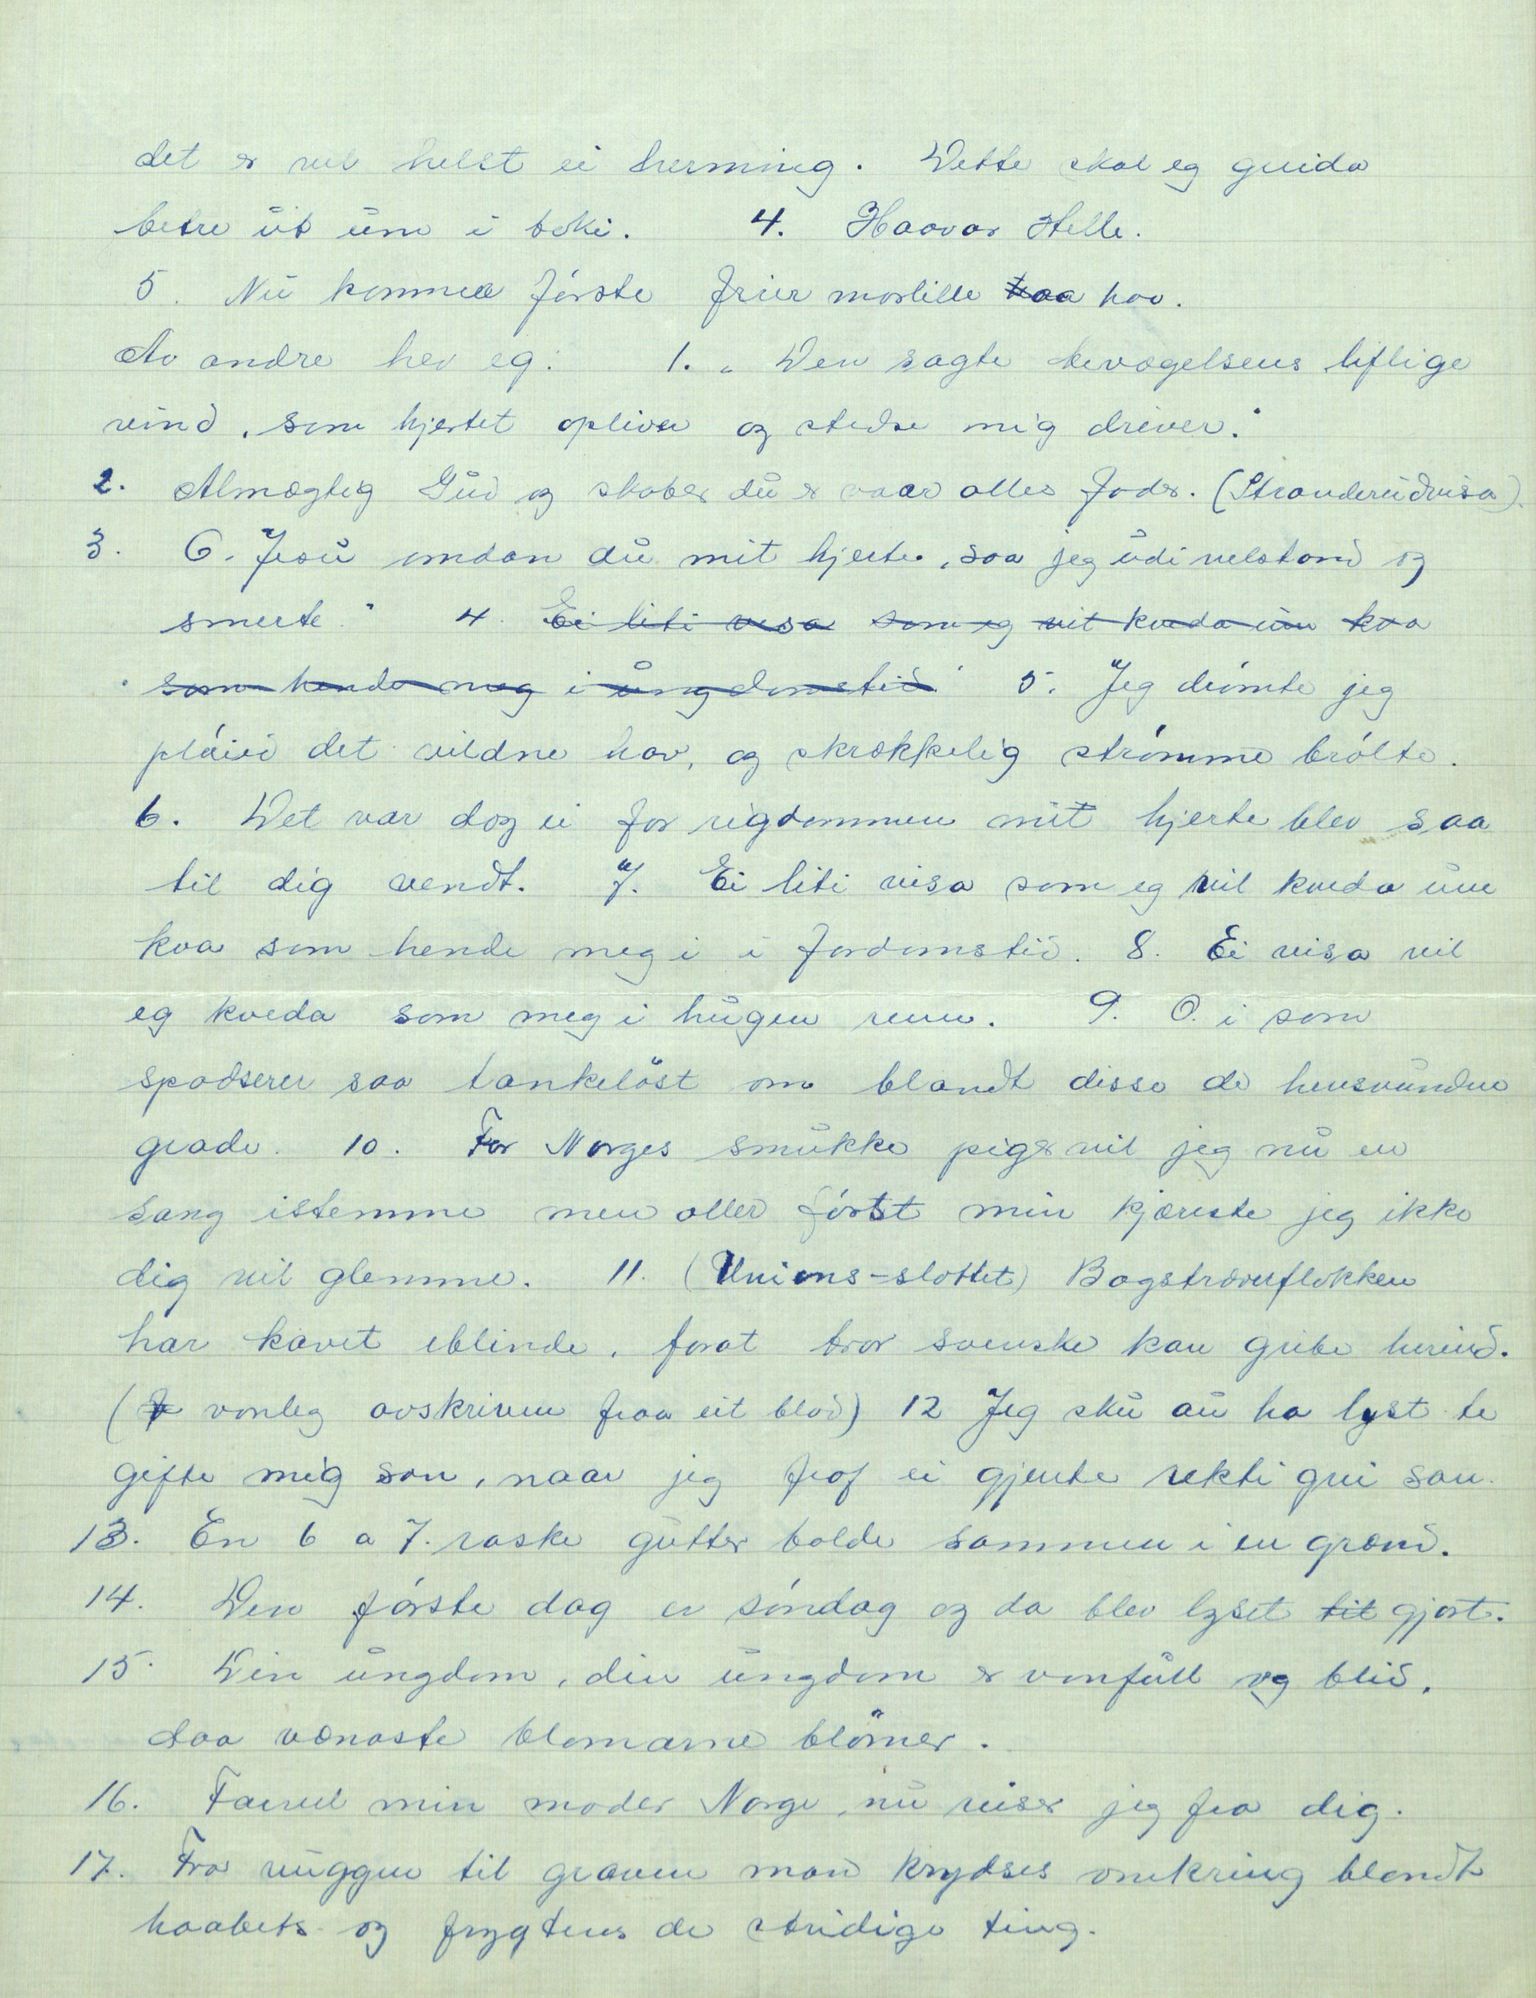 det er vel helst ei herming. Dette skal eg greida
betre ut um i boki. 4. Haavar Helle.
5. Nu kommer förste frier morlille haa hoo.
Av andre hev eg: 1. „Den sagte bevægelsens liflige
vind, som hjertet opliver og stedse mig driver."
2. Almægtig Gud og skaber du er vaar alles fader. (Stranderudvisa).
3. "O. Jesu omdan du mit hjerte, saa jeg udi velstand og
smerte" 4. Ei liti visa som eg vil kveda um kva
som hende meg i ungdomstid" 5. "Jeg drömte jeg
plöiet det vildne hav, og skrækkelig strömme brölte.
6. Det var dog ei for rigdommen mit hjerte blev saa
til dig vendt. 7. "Ei liti visa som eg vil kveda um
kva som hende meg i i fordomstid. 8. Ei visa vil
eg kveda som meg i hugen renn. 9. O. i som
spadserer saa tankelöst om blandt disse de hensvundne
grade. 10. For Norges smukke piger vil jeg nu en
sang istemme men aller först min kjæreste jeg ikke
dig vil glemme. 11. (Unions-slottet) Bagstræverflokken
har kavet iblinde, forat bror svenske kan gribe herind.
(vonleg avskriven fraa eit blad) 12 Jeg sku au ha lyst te
gifte mig san, naar jeg traf ei gjente rekti grei san.
13. En 6 a 7. raske gutter balde sammen i en grænd.
14. Den förste dag er söndag og da blev lyset tit gjort.
15. Din ungdom, din ungdom er vonfull og blid,
daa vænaste blomarne blömer.
16. Farvel min moder Norge, nu reiser jeg fra dig.
17. Fra vuggen til graven man krydses omkring blandt
haabets og frygtens de stridige ting.